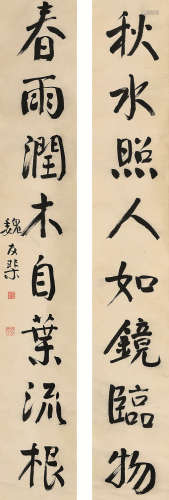 秋水照人如鏡臨物
春雨潤木自葉流根
魏友棐